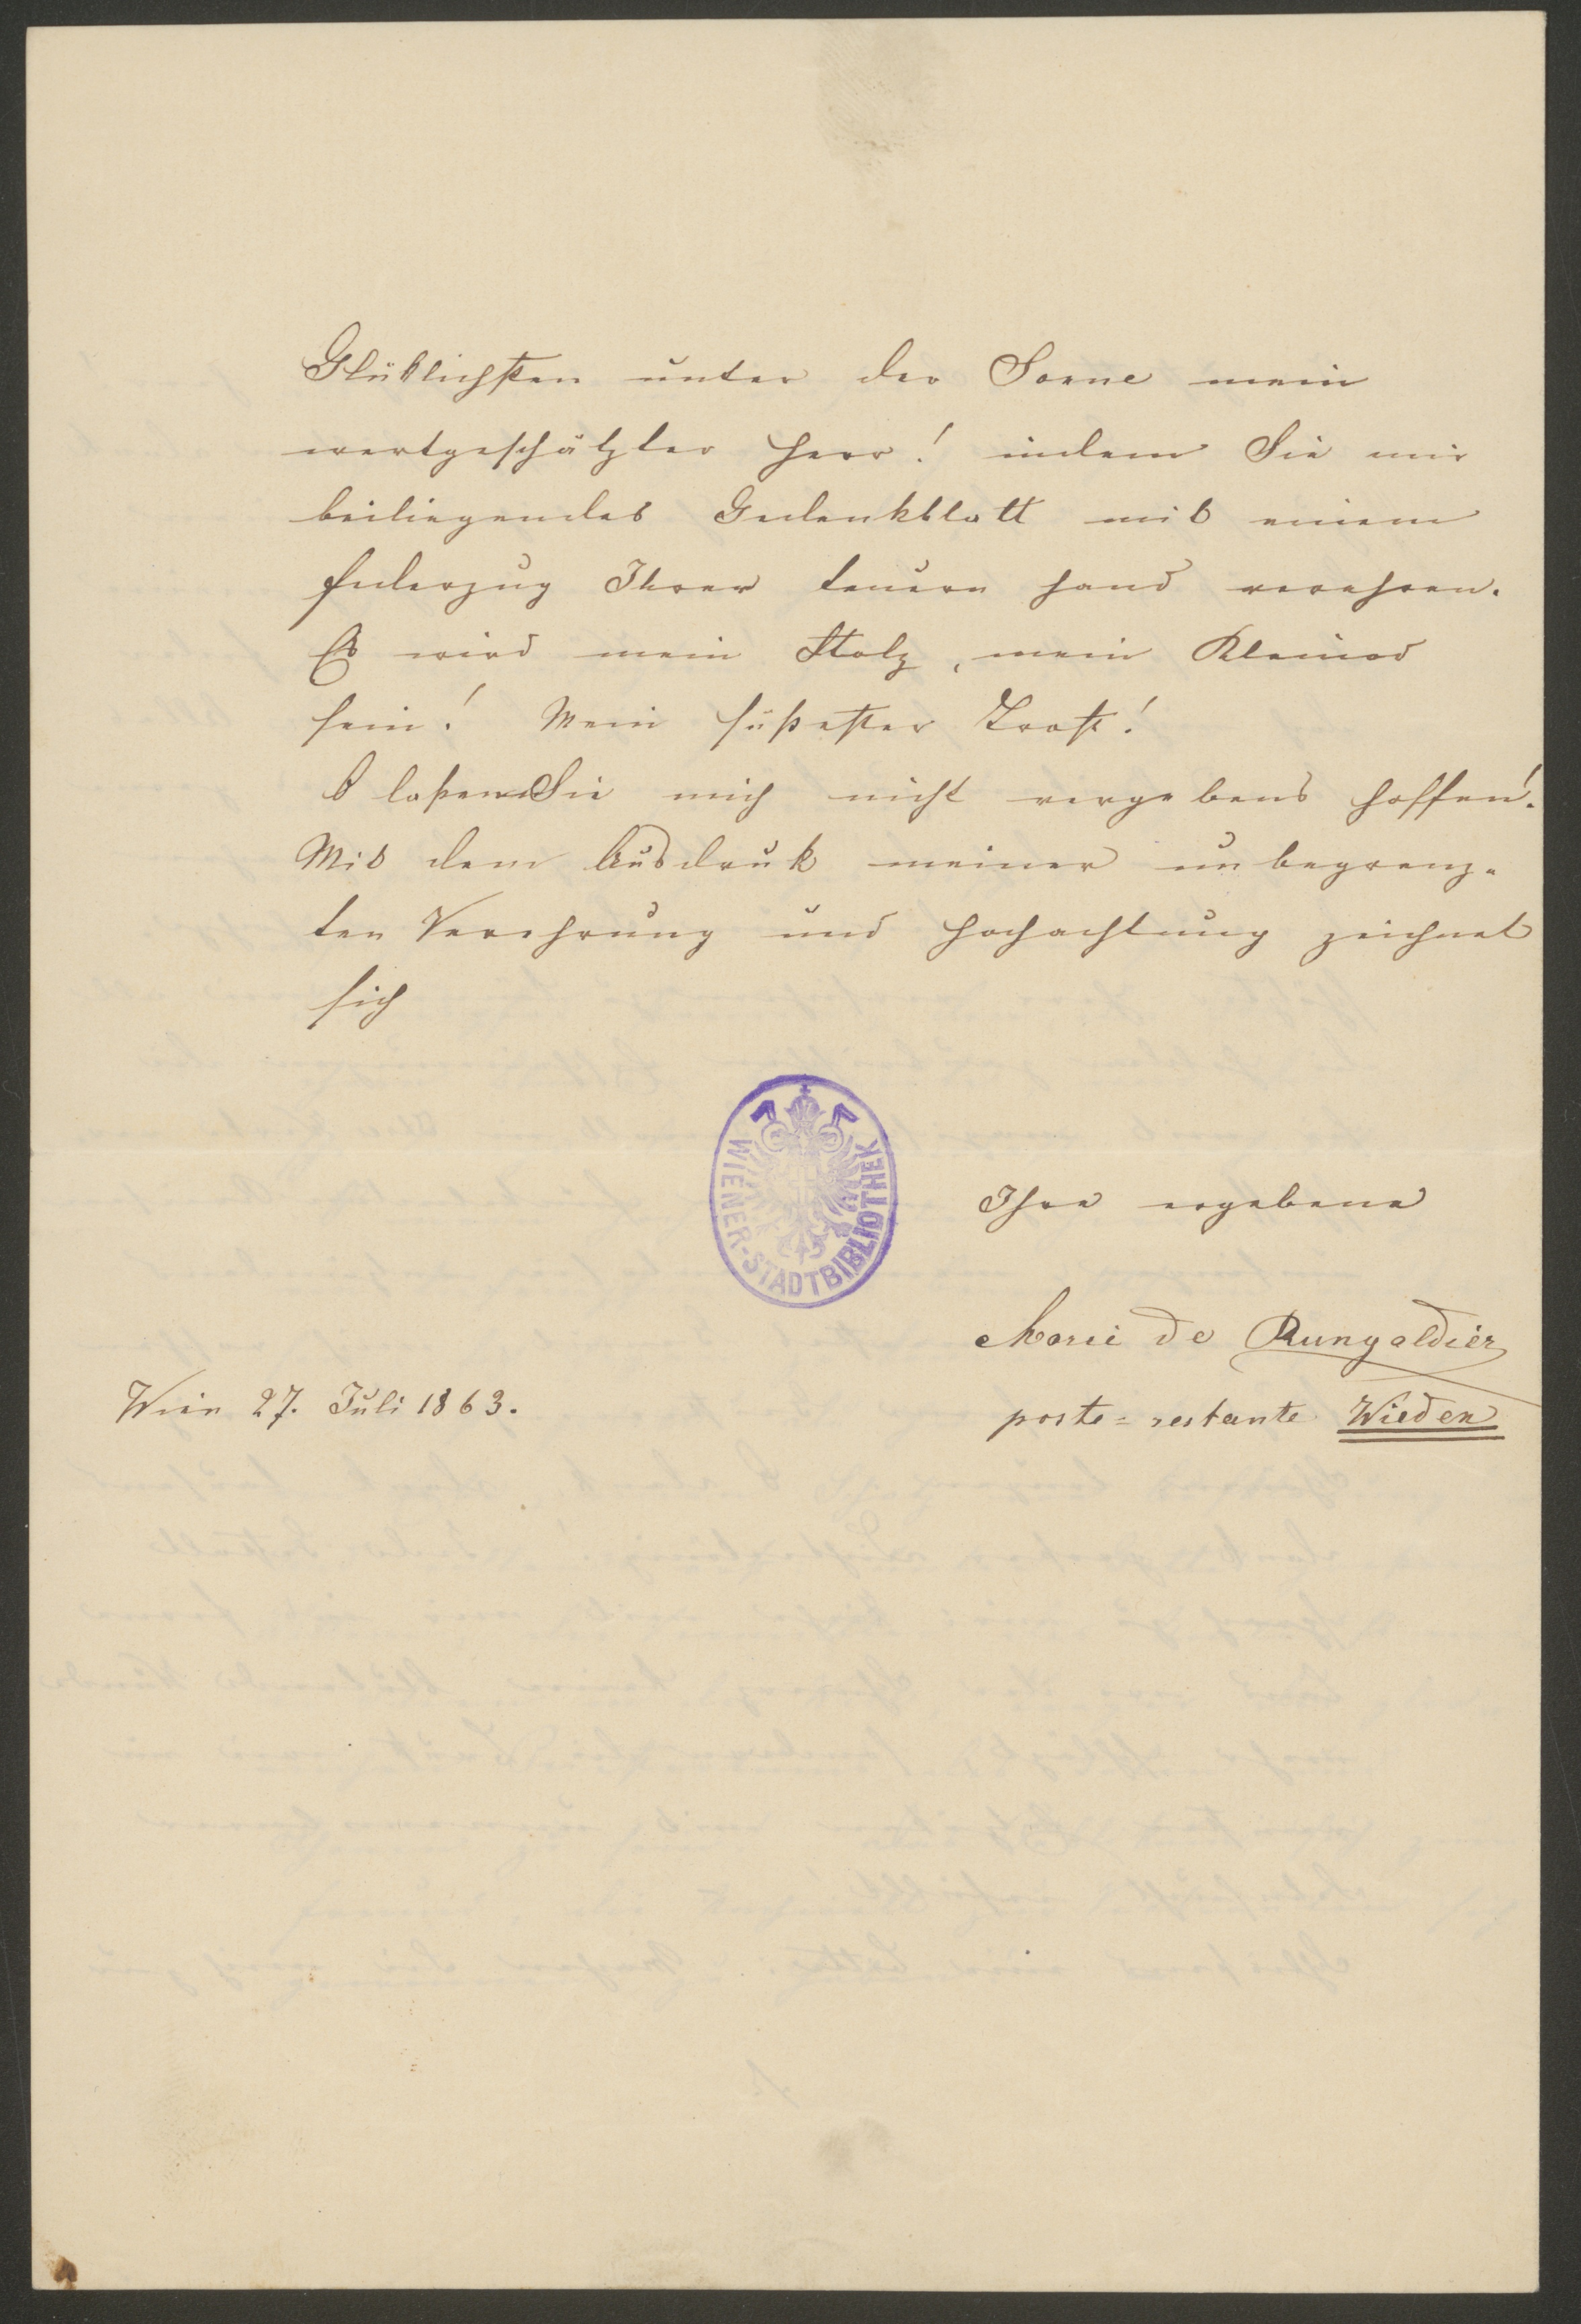 Glüklichsten unter der Sonne mein
wertgeschätzter Herr! indem Sie mir
beiliegendes Gedenkblatt mit einem
Federzug Ihrer teuern Hand verehren.
Es wird mein Stolz, mein Kleinod
sein! Mein süßester Trost!
O laßen Sie mich nicht vergebens hoffen!
Mit dem Ausdruk meiner unbegrenz-
ten Verehrung und Hochachtung zeichnet
sich
WIENER-STADTBIBLIOTHEK
Ihre ergebene
Marie de Rungaldier
Wien 27. Juli 1863.
poste=restante Wieden